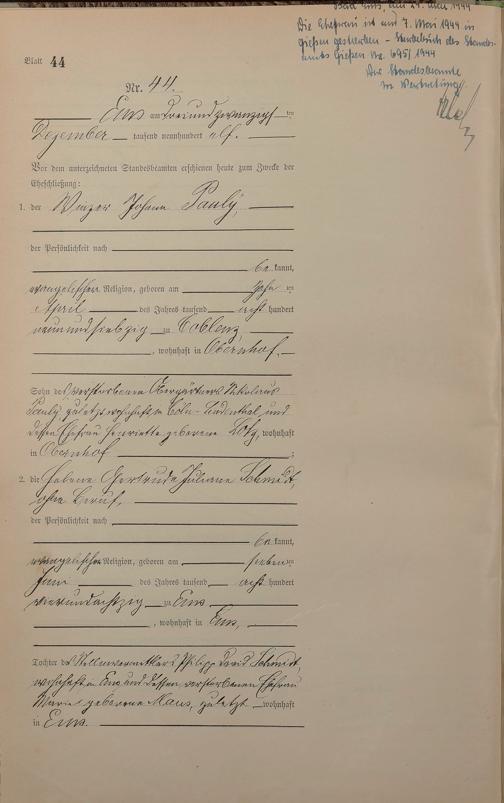 Bad Ems, den 24. Mai 1944
Die Ehefrau ist am 7. Mai 1944 in
Gießen gestorben – Sterbebuch des Standes-
amts Gießen Nr. 695/1944
Der Standesbeamte
In Vertretung
Blatt 44
Nr. 44.
Ems am dreiundzwanzigsten
Dezember tausend neunhundert elf.
Vor dem unterzeichneten Standesbeamten erschienen heute zum Zwecke der
Eheschließung:
1. der Winzer Johann Pauly,
der Persönlichkeit nach
be kannt,
evangelischer Religion, geboren am zehnten
April des Jahres tausend acht hundert
neunundsiebzig zu Coblenz,
, wohnhaft in Obernhof.
Sohn des verstorbenen Obergärtners Nikolaus
Pauly, zuletzt wohnhaft in Cöln-Lindenthal, und
dessen Ehefrau Henriette geborene Lotz, wohnhaft
in Obernhof ;
2. die Helene Gertrude Juliane Schmidt,
ohne Beruf,
der Persönlichkeit nach
be kannt,
evangelischer Religion, geboren am sieben
Juni des Jahres tausend acht hundert
vierundachtzig zu Ems
, wohnhaft in Ems,
Tochter des Stellenvermittlers Philipp David Schmidt,
wohnhaft in Ems und dessen verstorbenen Ehefrau
Marie geborene Maus, zuletzt wohnhaft
in Ems.